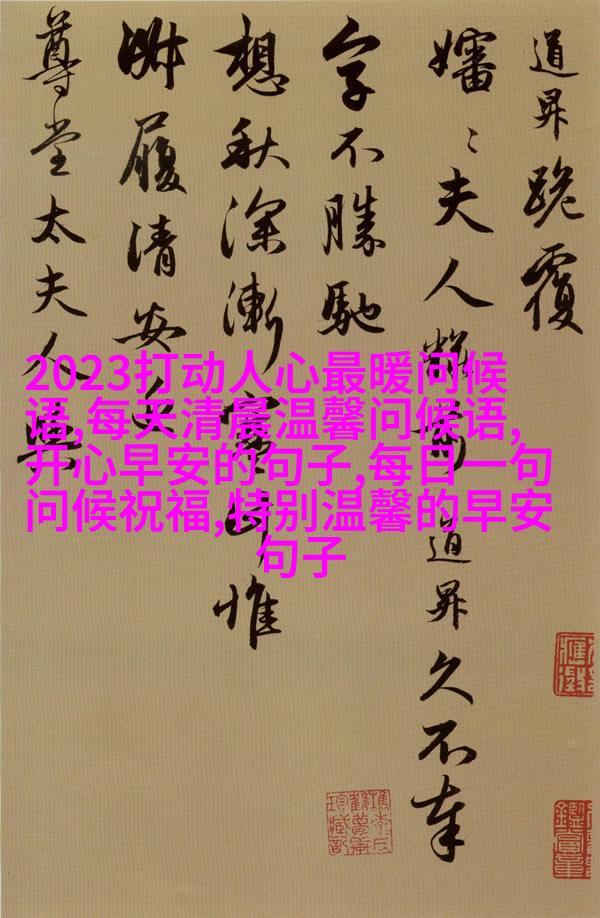 道昇跪覆
嬸〻夫人粧前道昇久不奉
字不勝馳
想秋深漸寒計惟
淑履清安
尊堂太夫人與
2023打动人心最暖问候
语,每天清晨温馨问候语,
开心早安的句子,每日一句
问候祝福,特别温馨的早安
句子